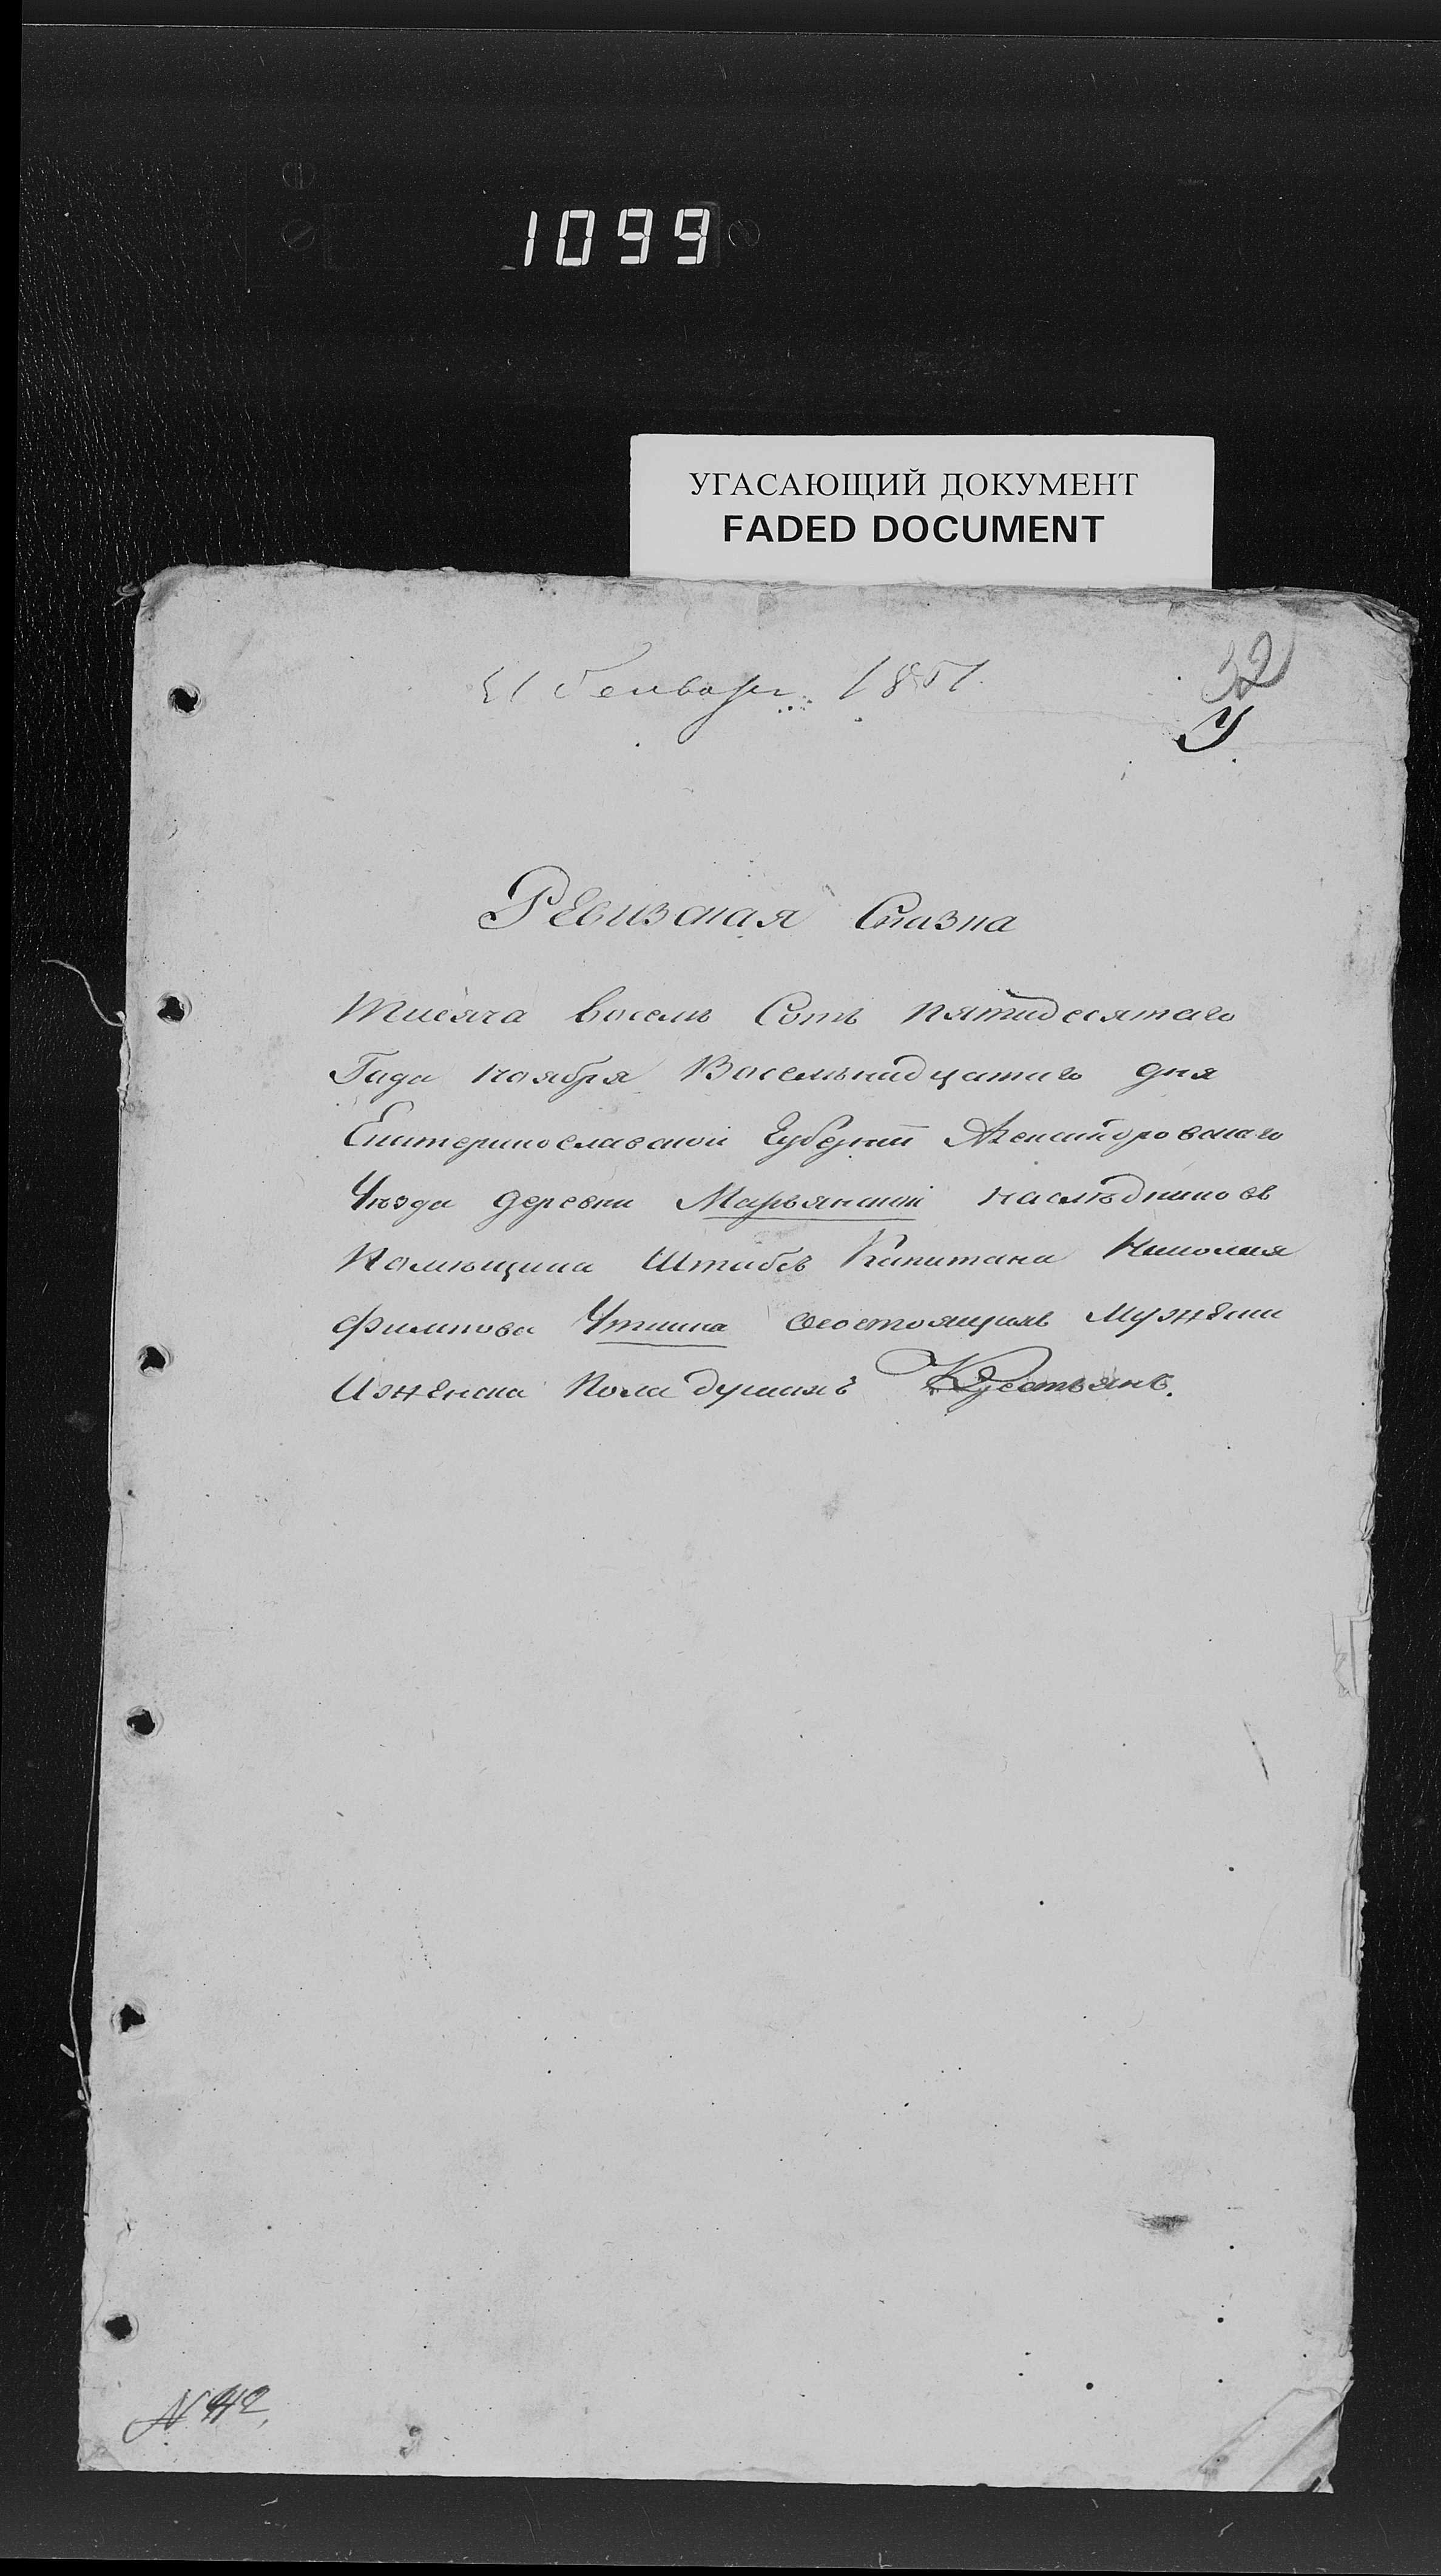 1099
УГАСАЮЩИЙ ДОКУМЕНТ
FADED DOCUMENT
Генваря 1851.
32
У.
Ревизская Сказка
Тисяча восемь Сотъ пятидесятаго
Года ноября Восемьнадцатаго дня
Екатеринославской Губерніи Александровскаго
Уѣзда деревни Марьянской наслѣдниковъ
Помющика Штабсъ Капитана Николая
состоящихъ Мужеска
Иженска пола душахъ Крестьянъ.
N 42.